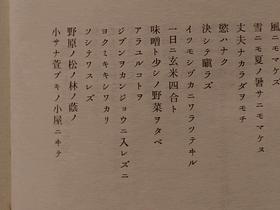 風ニモマケズ
雪ニモ夏ノ暑サニモマケヌ
丈夫ナカラダヲモチ
慾ハナク
決シテ瞋ラズ
イツモシヅカニワラッテヰル
一日ニ玄米四合ト
味噌ト少シノ野菜ヲタベ
アラユルコトヲ
ジブンヲカンジョウニ入レズニ
ヨクミキキシワカリ
ソシテワスレズ
野原ノ松ノ林ノ蔭ノ
小サナ萱ブキノ小屋ニヰテ